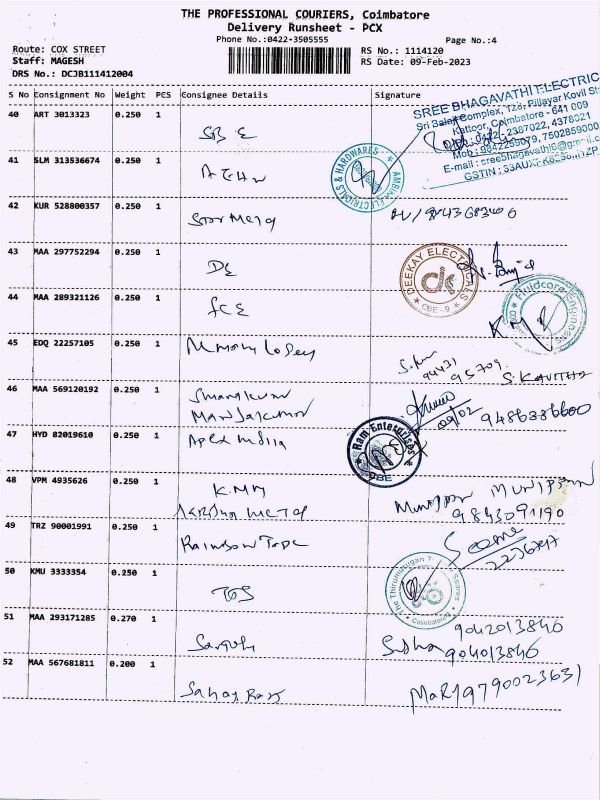 THE PROFESSIONAL COURIERS, Coimbatore
Delivery Runsheet - PCX
Phone No.:0422-3505555
Page No.:4
Route: COX STREET
Staff: MAGESH
DRS No.: DCJB111412004
RS No.: 1114120
RS Date: 09-Feb-2023
S No Consignment No Weight PCS Consignee Details Signature
40 ART 3013323 0.250 1
SREE BHAGAVATHI ELECTRIC
Sri Balaji Complex, 128, Pillayar Kovil St
Kattoor, Coimbatore - 641 009
2387022, 4378021
Mob : 9842255079, 7502859000
E-mail : sreebhagavathi6@gmail.c
GSTIN : 33AUXFK
SBE
41 SLM 313536674 0.250 1
AMBIKA ELECTRICALS & HARDWARES
42 KUR 528800357 0.250 1
Star Metal
43 MAA 297752294 0.250 1
DE
DEEKAY ELECTRICALS
dk
CBE - 9
44 MAA 289321126 0.250 1
FCE
Fluidcare Engineers
KM
45 EDQ 22257105 0.250 1
S.KAVITHA
46 MAA 569120192 0.250 1
Manjakumar
09/02
9486386600
47 HYD 82019610 0.250 1
Apex India
Ram Enterprises
CBE
48 VPM 4935626 0.250 1
K.MM
MUNIPPAN
9843091190
49 TRZ 90001991 0.250 1
Rainbow Tape
50 KMU 3333354 0.250 1
TGS
The Thirumurugan
Stores
Coimbatore
51 MAA 293171285 0.270 1
9042013846
Sudha 904013846
52 MAA 567681811 0.200 1
Sahay Raj
MaRy 9790023631